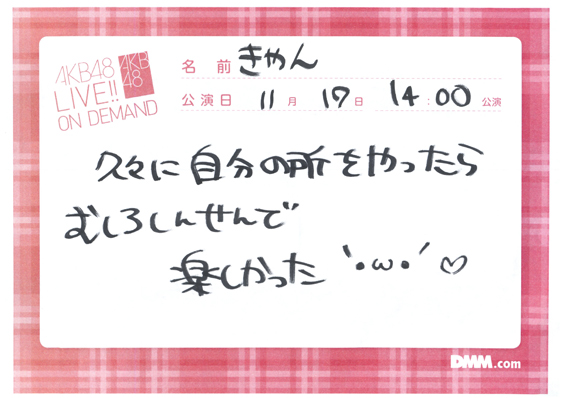 AKB48
LIVE!!
ON DEMAND
AKB
48
名前 きゃん
公演日 11月 17日 14:00 公演
久々に自分の所をやったら
むしろしんせんで
楽しかった `•ω•´♡
DMM.com